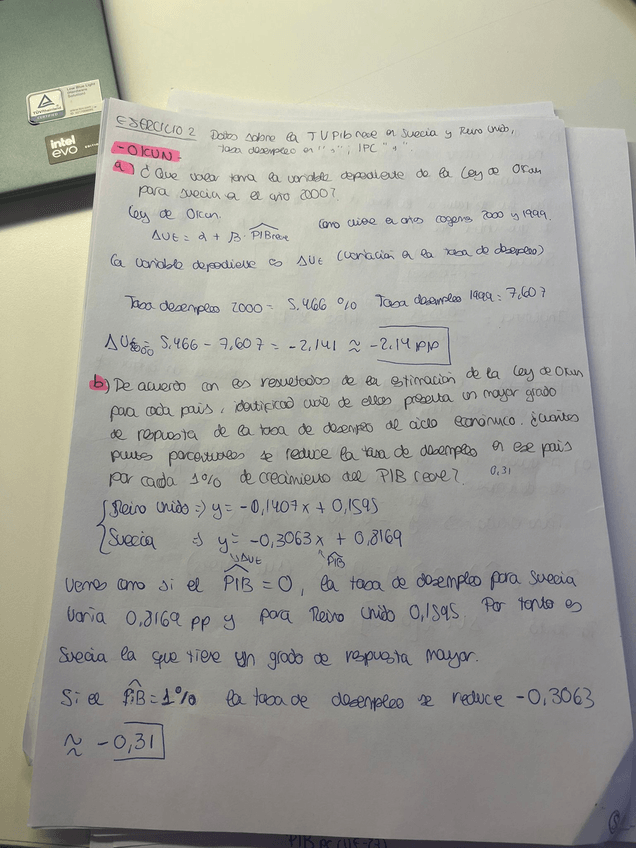 TÜVRheinland
CERTIFIED
Low Blue Light
Hardware
Solution
intel
evo
EDITION
EJERCICIO 2 Datos sobre la TVPIbreal en Suecia y Reino Unido,
tasa desempleo en " ", IPC " "
- OKUN -
a) ¿Que valor toma la variable dependiente de la Ley de Okun
para Suecia en el año 2000?
Ley de Okun. Como viene en años cogemos 2000 y 1999.
ΔUt = α + β · PIBreal
La variable dependiente es ΔUt (variación en la tasa de desempleo)
Tasa desempleo 2000 = 5,466 % Tasa desempleo 1999 = 7,607
ΔU2000 = 5,466 - 7,607 = -2,141 ≈ -2.14 pp
b) De acuerdo con los resultados de la estimación de la Ley de Okun
para cada país, identificad cuál de ellos presenta un mayor grado
de respuesta de la tasa de desempleo al ciclo económico. ¿Cuántos
puntos porcentuales se reduce la tasa de desempleo en ese país
por cada 1% de crecimiento del PIB real? 0,31
Reino Unido => y = -0,1407x + 0,1595
Suecia => y = -0,3063x + 0,8169
ΔUt PIB
Vemos como si el PIB = 0, la tasa de desempleo para Suecia
varia 0,8169 pp y para Reino Unido 0,1595. Por tanto es
Suecia la que tiene un grado de respuesta mayor.
Si el PIB = 1% la tasa de desempleo se reduce -0,3063
≈ -0,31